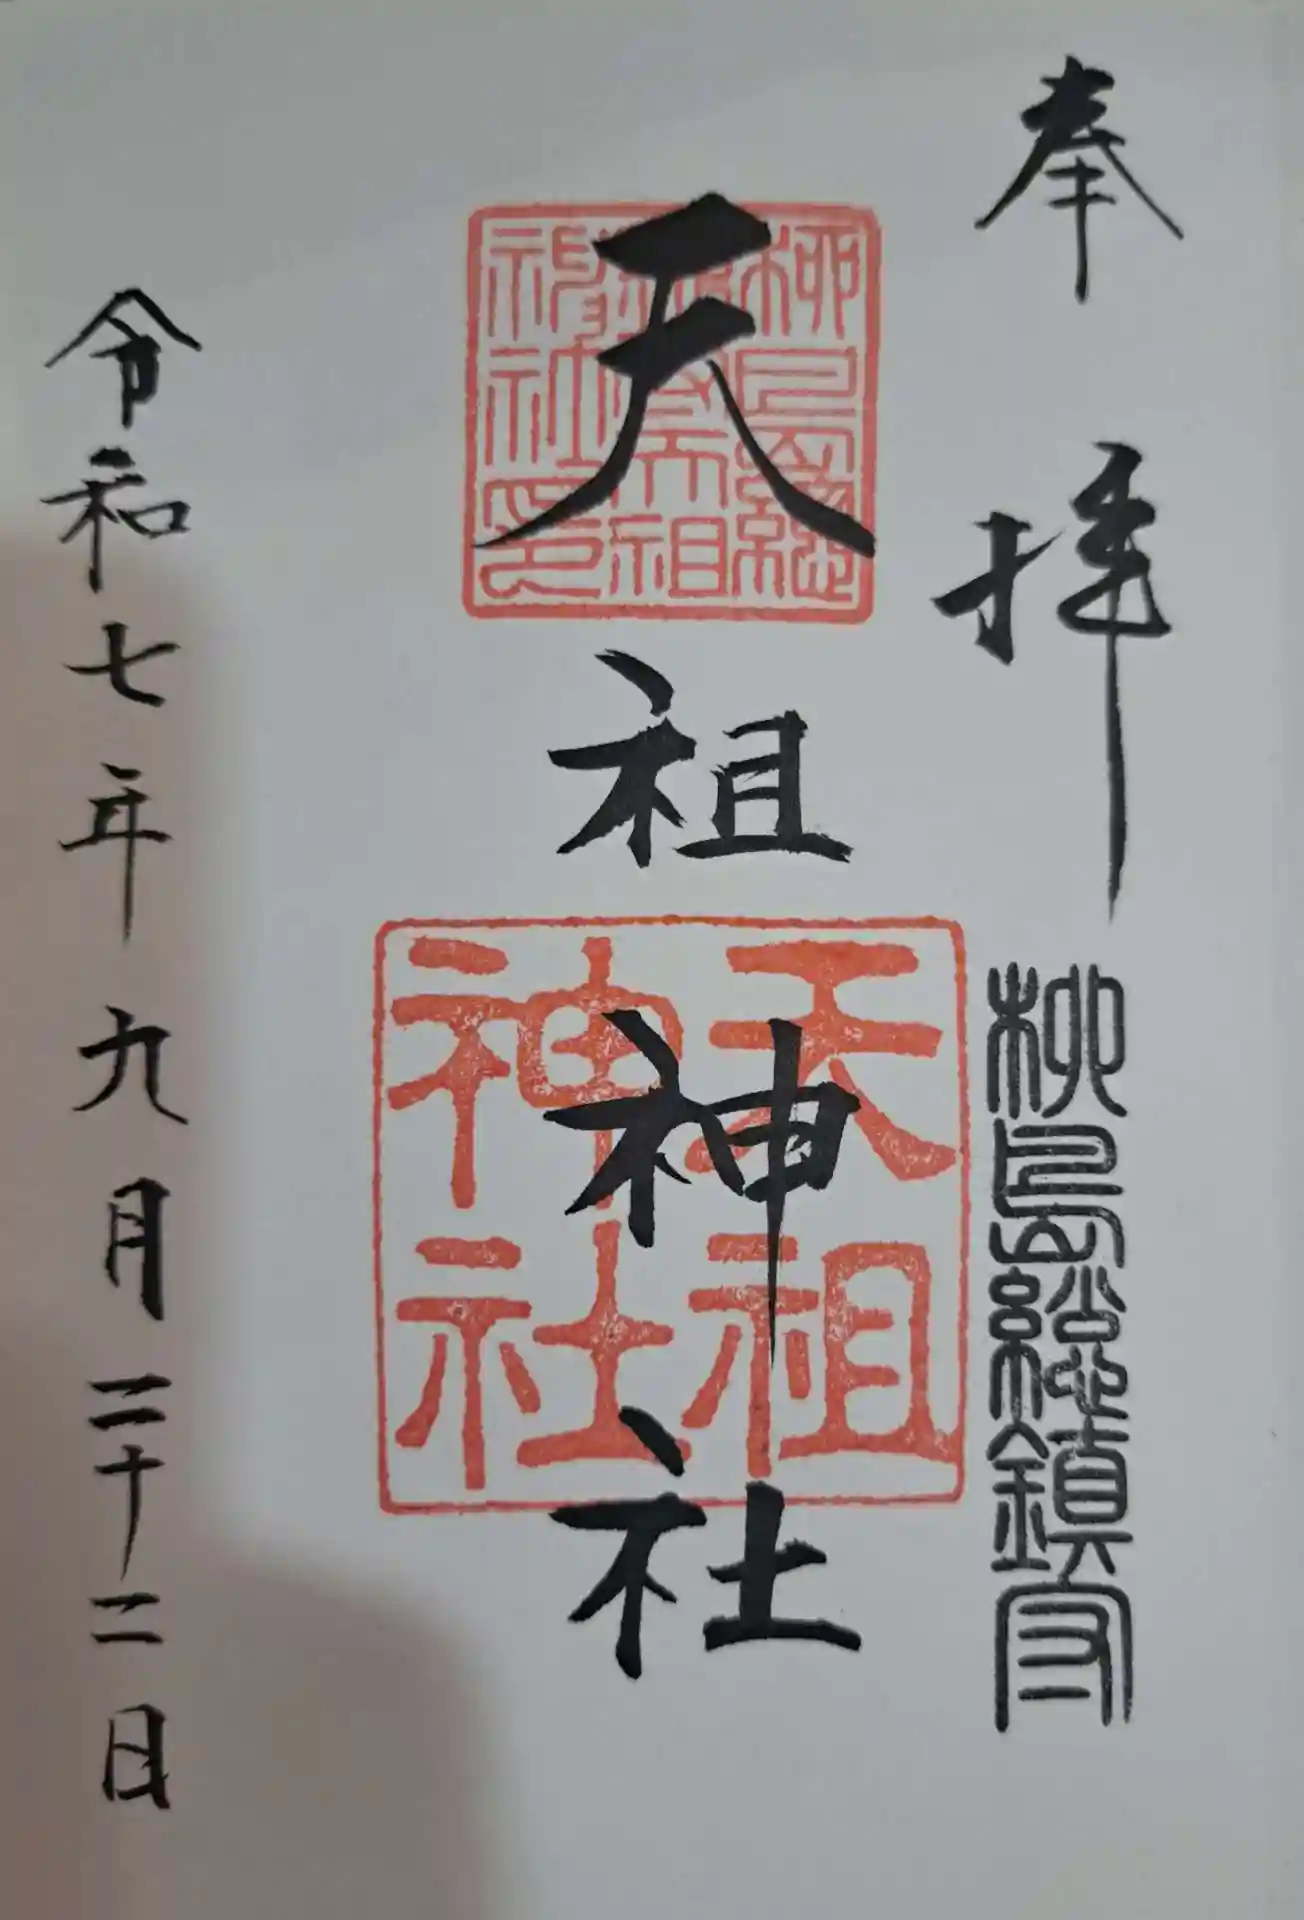 奉拝
柳島総鎮守
天祖神社
柳島総
鎮守天祖
神社印
天祖
神社
令和七年九月二十二日